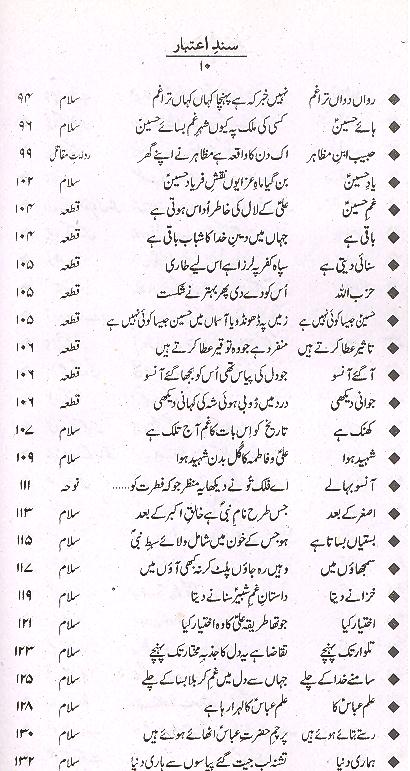 سندِ اعتبار
۱۰
◆ رواں دواں ترا غم نہیں خبر کہ ہے پہنچا کہاں کہاں ترا غم سلام ۹۴
◆ ہائے حسینؑ کسی کی ملک پہ کیوں شہرِ غم بسائے حسینؑ سلام ۹۶
◆ حبیب ابنِ مظاہر اک دن کا واقعہ ہے مظاہر نے اپنے گھر روایاتِ مقاتل ۹۹
◆ یادِ حسینؑ بن گیا ماہِ عزا یوں نقشِ فریادِ حسینؑ سلام ۱۰۲
◆ غمِ حسینؑ علیؑ کے لال کی خاطر اُداس ہوتی ہے قطعہ ۱۰۴
◆ باقی ہے جہاں میں دینِ خدا کا شباب باقی ہے قطعہ ۱۰۴
◆ سنائی دیتی ہے سپاہِ کفر پہ لرزا ہے اس لیے طاری قطعہ ۱۰۵
◆ حزب اللہ اُس کو دے دی پھر بہتر نے شکست قطعہ ۱۰۵
◆ حسینؑ جیسا کوئی نہیں ہے زمیں پہ ڈھونڈو یا آسماں میں حسین جیسا کوئی نہیں ہے قطعہ ۱۰۵
◆ تاثیر عطا کرتے ہیں منفرد ہے جو وہ توقیر عطا کرتے ہیں قطعہ ۱۰۶
◆ آگئے آنسو جو دل کی پیاس تھی اُس کو بجھا گئے آنسو قطعہ ۱۰۶
◆ جوانی دیکھی درد میں ڈوبی ہوئی شہ کی کہانی دیکھی قطعہ ۱۰۶
◆ کھٹک ہے تاریخ کو اِس بات کا غم آج تلک ہے سلام ۱۰۷
◆ شہید ہوا علیؑ و فاطمہؑ کا گُل بدن شہید ہوا سلام ۱۰۹
◆ آنسو بہالے اے فلک تُو نے دیکھا یہ منظر جو کہ فطرت کو...... نوحہ ۱۱۱
◆ اصغر کے بعد جس طرح نامِ نبیؐ ہے خالقِ اکبر کے بعد سلام ۱۱۳
◆ بستیاں بساتا ہے ہو جس کے خون میں شامل ولائے سبطِ نبیؐ سلام ۱۱۵
◆ سمجھاؤں میں وہیں رہ جاؤں پلٹ کر نہ کبھی آؤں میں سلام ۱۱۷
◆ خزانے دیتا داستانِ غمِ شبیرؑ سنانے دیتا سلام ۱۱۹
◆ اختیار کیا جو تھا طریقہ علیؑ کا وہ اختیار کیا سلام ۱۲۱
◆ تلوار تک پہنچے تقاضا ہے یہ دل کا جذبۂ مختار تک پہنچے سلام ۱۲۳
◆ سامنے خدا کے چلے جہاں سے دل میں غمِ کربلا بسا کے چلے سلام ۱۲۵
◆ علم عباسؑ کا علم عباسؑ کا لہرا رہا ہے سلام ۱۲۸
◆ رستے بتائے ہوئے ہیں پرچمِ حضرتِ عباسؑ اٹھائے ہوئے ہیں سلام ۱۳۰
◆ ہماری دنیا تشنہ لب جیت گئے پیاسوں سے ہاری دنیا سلام ۱۳۲